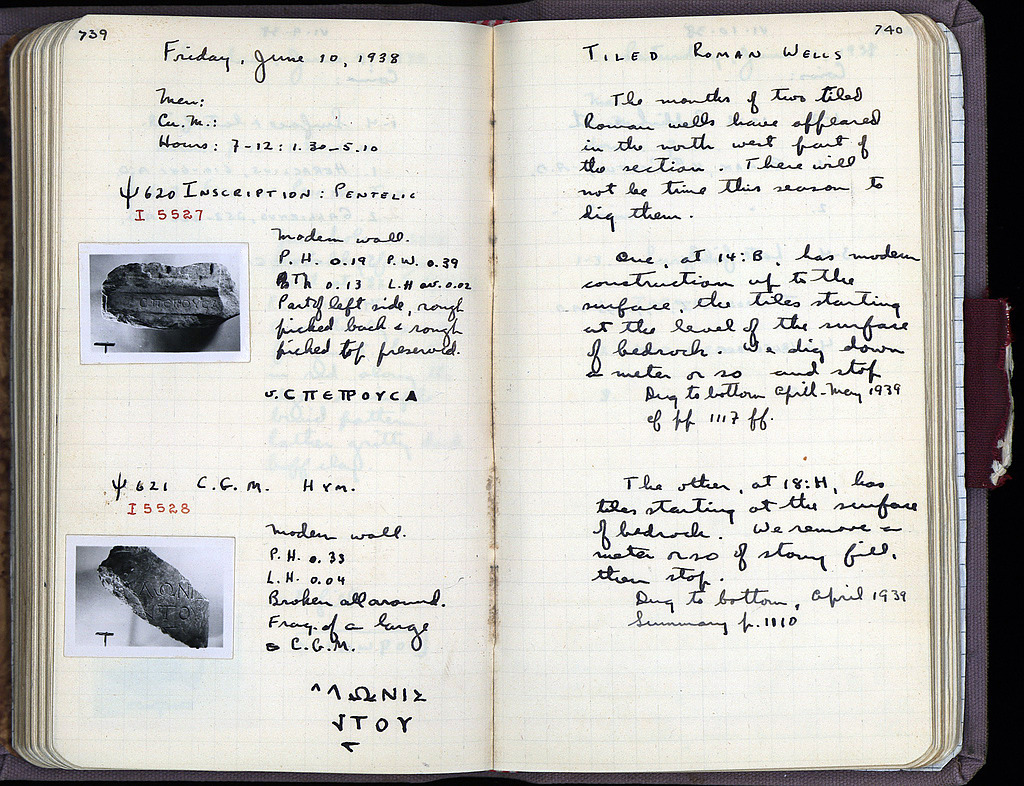 739
Friday, June 10, 1938
Men:
Cu. M.:
Hours: 7-12: 1.30-5.10
Ψ 620 INSCRIPTION: PENTELIC
I 5527
Modern wall.
P. H. 0.19 P. W. 0.39
Th 0.13 L. H av. 0.02
Part of left side, rough
picked back & rough
picked top preserved.
СΠΕΤΡΟΥСΑ
Ψ 621 C. G. M. HYM.
I 5528
Modern wall.
P. H. 0.33
L. H. 0.04
Broken all around.
Frag. of a large
C. G. M.
ΛΩΝΙΣ
ΤΟΥ
740
TILED ROMAN WELLS
The mouths of two tiled
Roman wells have appeared
in the north west part of
the section. There will
not be time this season to
dig them.
One, at 14:B, has modern
construction up to the
surface, the tiles starting
at the level of the surface
of bedrock. We dig down
a meter or so and stop
Dug to bottom April-May 1939
cf pp 1117 ff.
The other, at 18:H, has
tiles starting at the surface
of bedrock. We remove a
meter or so of stony fill,
then stop.
Dug to bottom, April 1939
Summary p. 1110